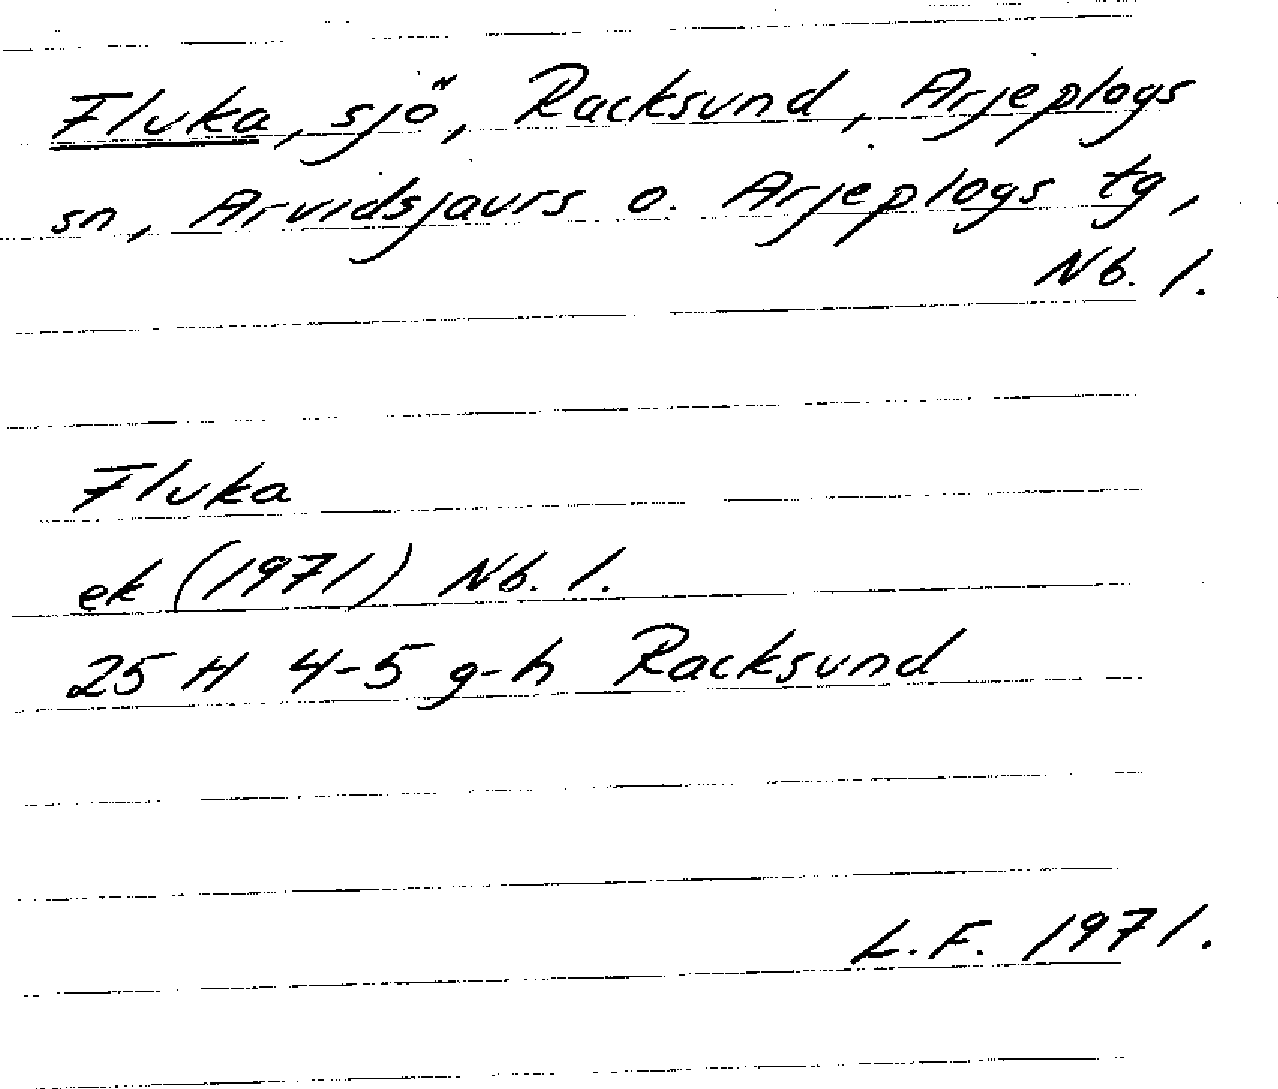 Fluka, sjö, Racksund, Arjeplogs
sn, Arvidsjaurs o. Arjeplogs tg,
Nb. l.
Fluka
ek (1971) Nb. l.
25 H 4-5 g-h Racksund
L.F. 1971.